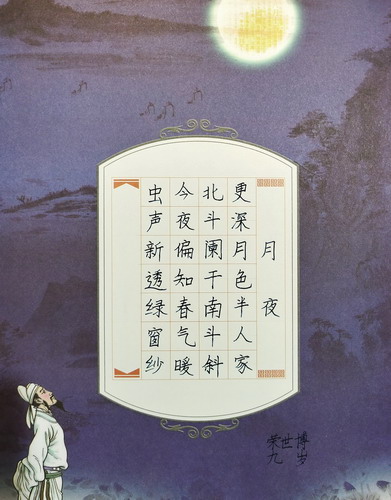 月夜
更深月色半人家
北斗阑干南斗斜
今夜偏知春气暖
虫声新透绿窗纱
荣世博
九岁